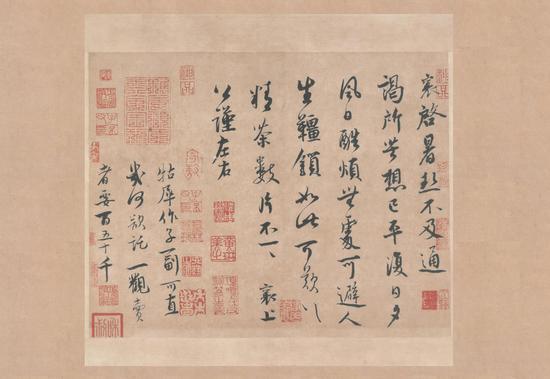 襄啓暑熱不及通
謁所苦想已平復日夕
風日酷煩無處可避人
生韁鎖如此可歎〻
精茶數片不一〻 襄上
公謹左右
牯犀作子一副可直
幾何欲託一觀賣
者要百五十千